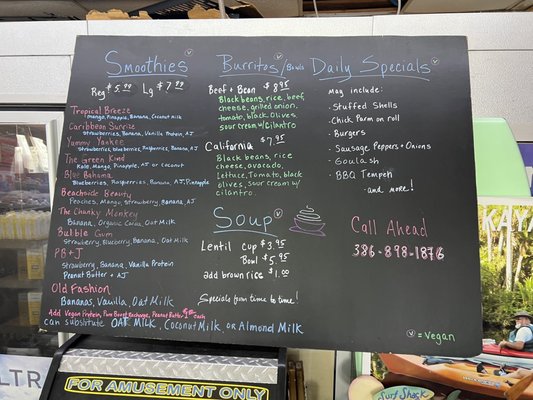 Smoothies
Reg $5.99 Lg $7.99
Tropical Breeze
mango, Pineapple, Banana, Coconut Milk
Caribbean Sunrize
Strawberries, Banana, Vanilla Protein, AJ
Yummy Yankee
Strawberries, blueberries, Raspberries, Banana, AJ
The Green Kind
Kale, Mango, Pineapple, AJ or coconut
Blue Bahama
Blueberries, Raspberries, Banana, AJ, Pineapple
Beachside Beauty
Peaches, Mango, Strawberry, Banana, AJ
The Chunky Monkey
Banana, Organic Cacao, Oat Milk
Bubble Gum
Strawberry, Blueberry, Banana, Oat Milk
PB+J
Strawberry, Banana, Vanilla Protein
Peanut Butter + AJ
Old Fashion
Bananas, Vanilla, Oat Milk
Add Vegan Protein, Pure Boost Recharge, Peanut Butter each
can substitute OAT MILK, Coconut Milk, or Almond Milk
Burritos / Bowls
Beef + Bean $8.95
Black beans, rice, beef,
cheese, grilled onion,
tomato, black olives,
sour cream w/ cilantro
California $7.95
Black beans, rice
cheese, avocado,
lettuce, tomato, black
olives, sour cream w/
cilantro
Soup
Lentil cup $3.95
Bowl $5.95
add brown rice $1.00
Specials from time to time!
Daily Specials
may include:
• Stuffed Shells
• Chick Parm on roll
• Burgers
• Sausage, Peppers + Onions
• Goulash
• BBQ Tempeh
and more!
Call Ahead
386-898-1876
V = vegan
FOR AMUSEMENT ONLY
Surf Shack